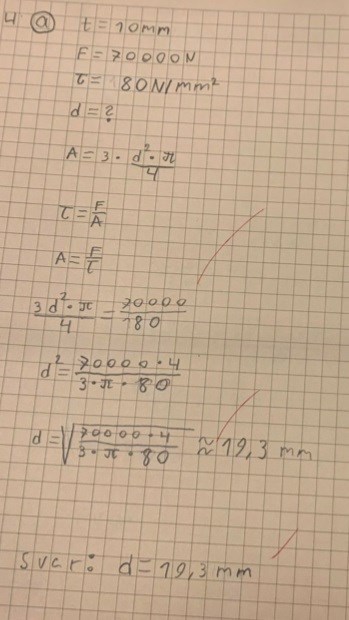 4 a t = 10mm
F = 70000N
τ = 80N/mm²
d = ?
A = 3 · d² · π / 4
τ = F / A
A = F / τ
3d² · π / 4 = 70000 / 80
d² = 70000 · 4 / 3 · π · 80
d = √(70000 · 4 / 3 · π · 80) ≈ 19,3 mm
Svar: d = 19,3 mm